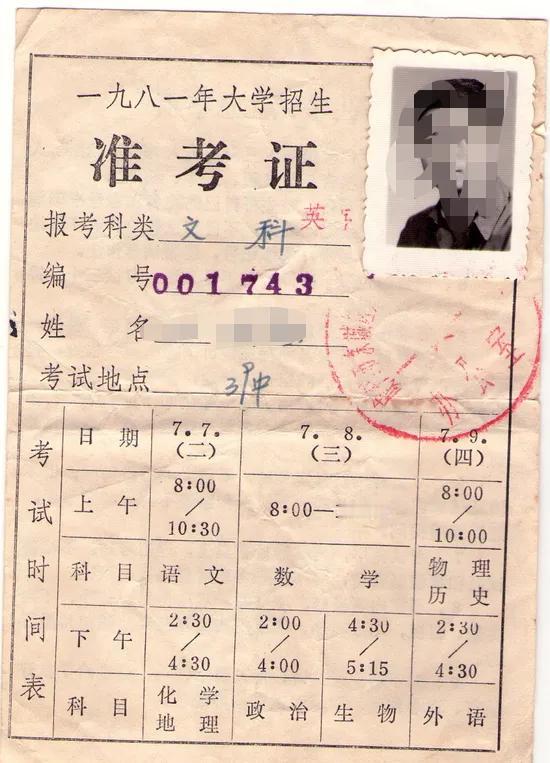 一九八一年大学招生
准考证
报考科类 文 科 英
编 号 001743
姓 名
考试地点 中
考试时间表
日期 7.7.(二) 7.8.(三) 7.9.(四)
上午 8:00/10:30 8:00— 8:00/10:00
科目 语文 数学 物理 历史
下午 2:30/4:30 2:00/4:00 4:30/5:15 2:30/4:30
科目 化学 地理 政治 生物 外语
办公室